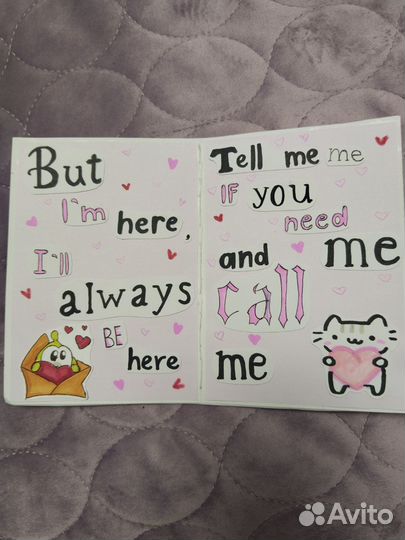 But
I'm
here,
I'll
always
BE
here
Tell me me
IF you
need
and me
call
me
Avito